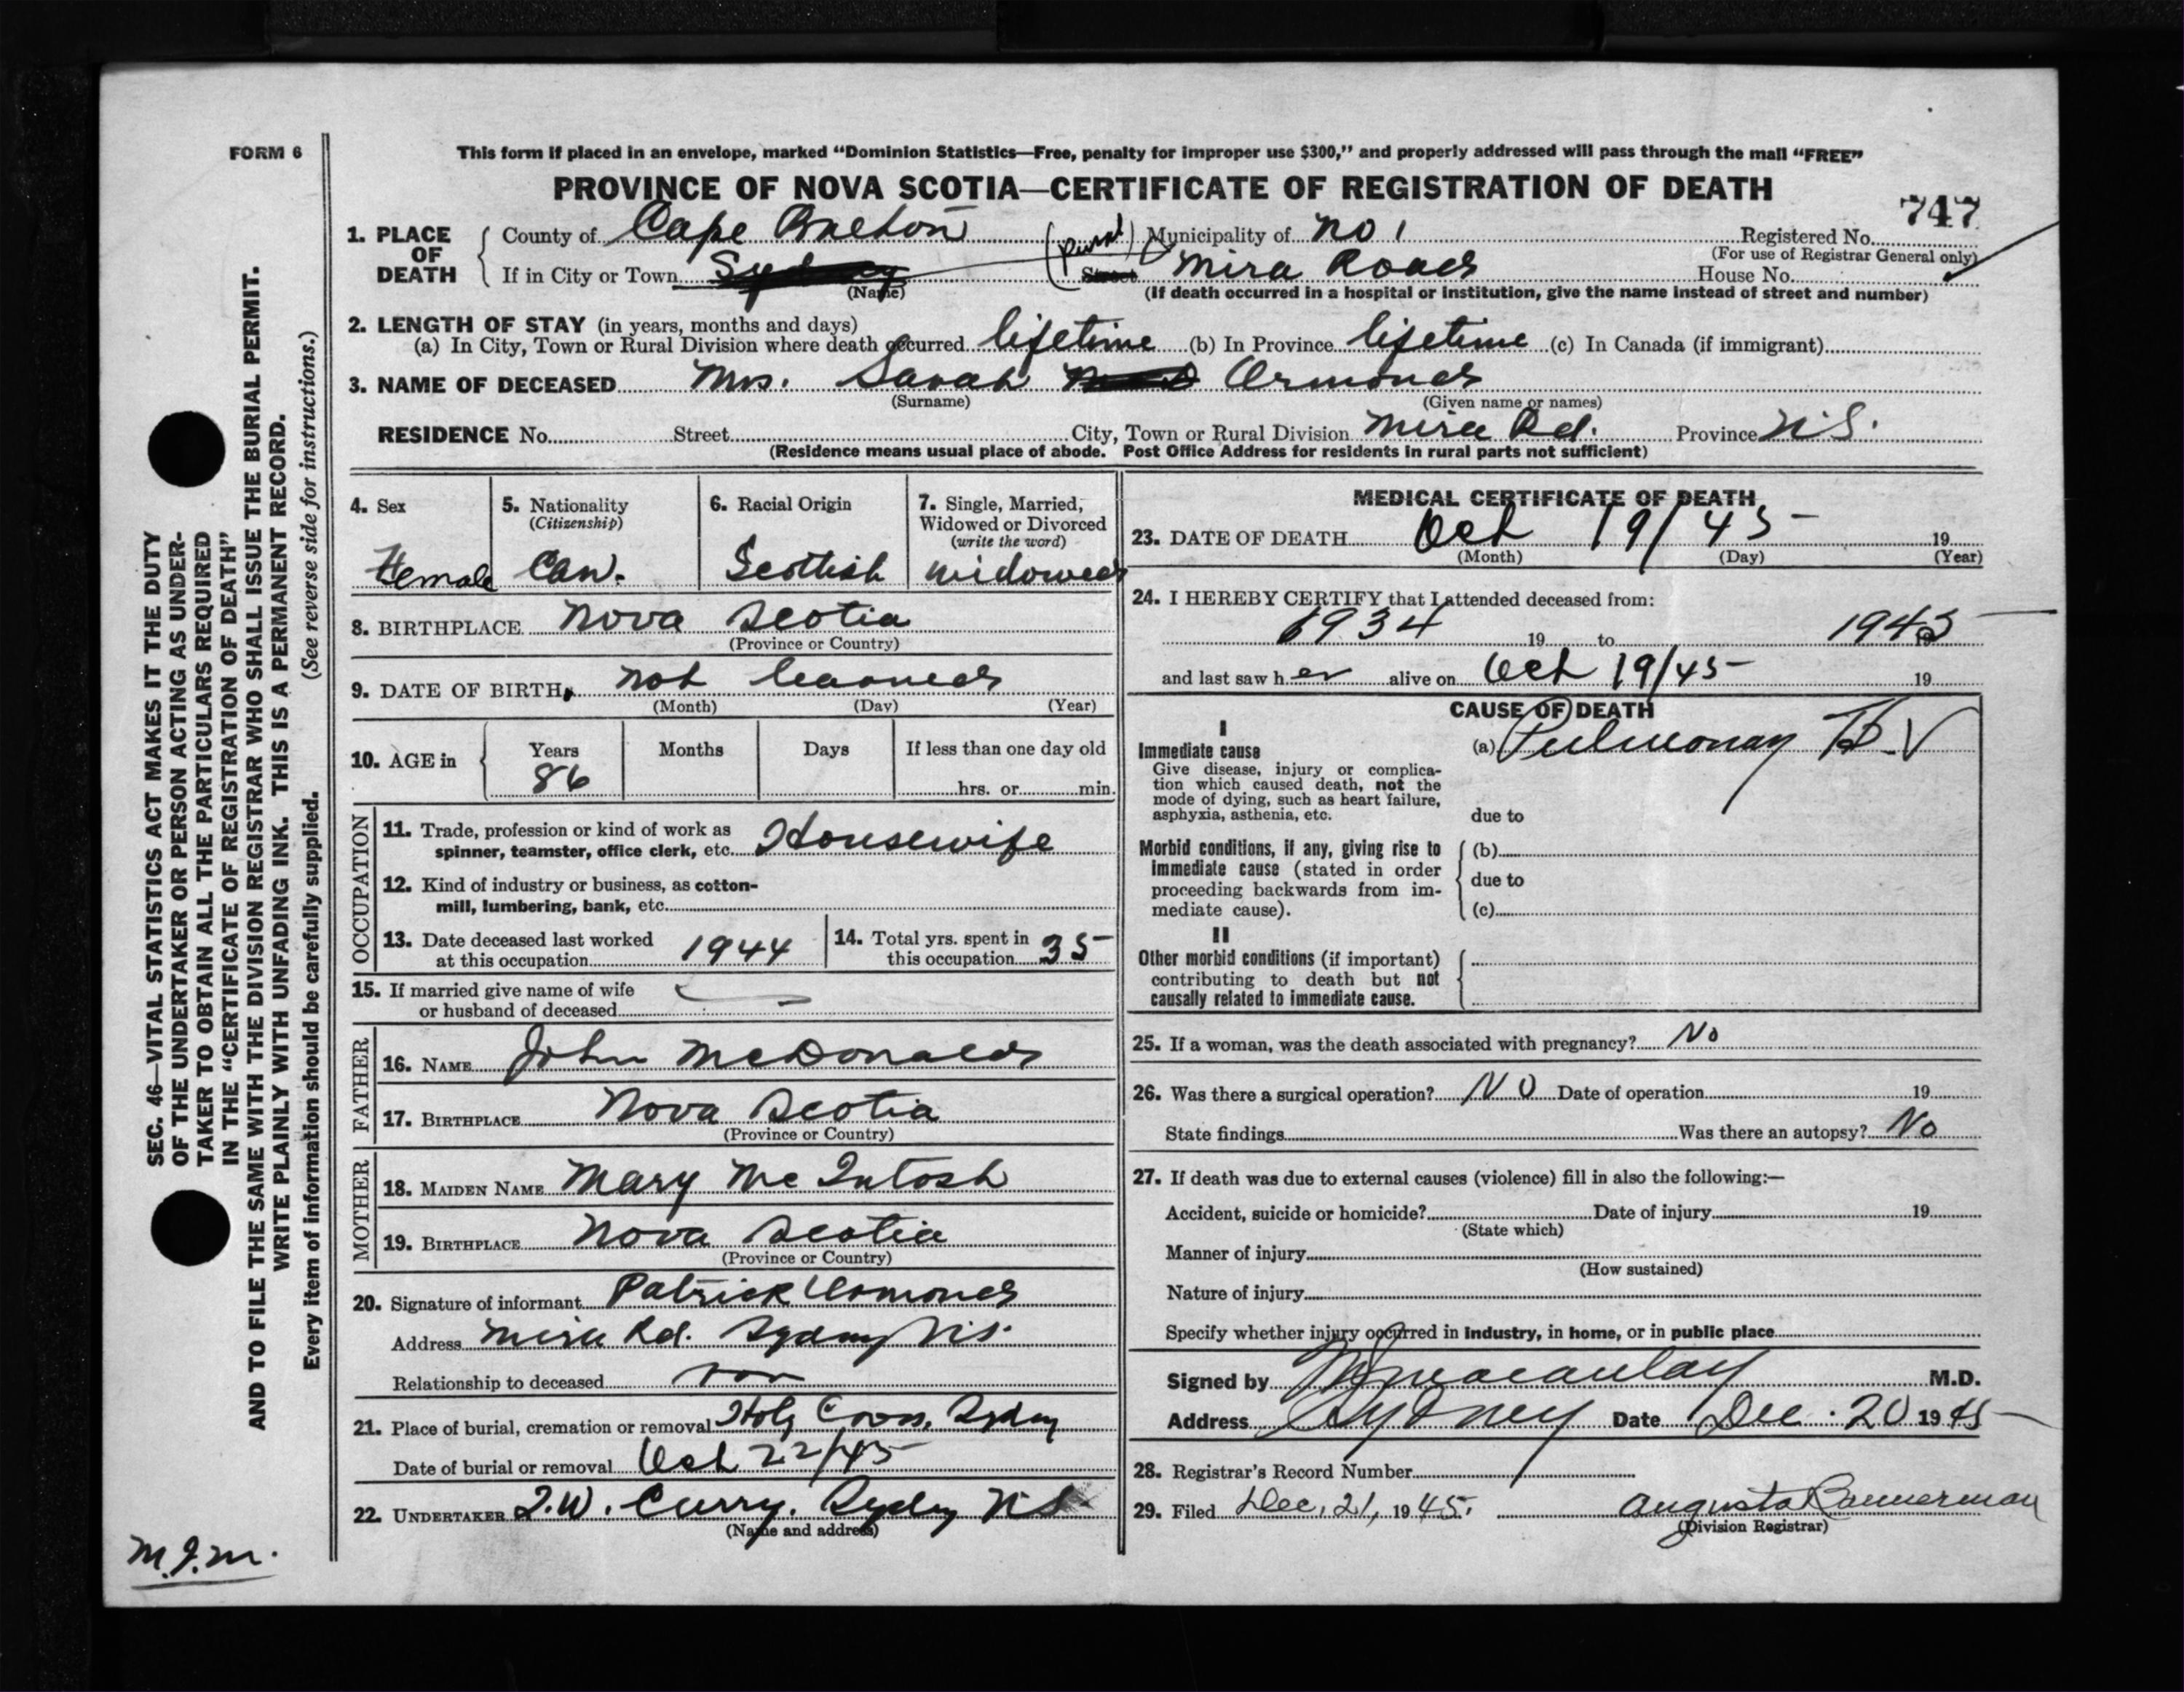 FORM 6
This form if placed in an envelope, marked "Dominion Statistics—Free, penalty for improper use $300," and properly addressed will pass through the mail "FREE"
PROVINCE OF NOVA SCOTIA—CERTIFICATE OF REGISTRATION OF DEATH
747
1. PLACE OF DEATH
County of Cape Breton (Rural) Municipality of No 1 Registered No.
(For use of Registrar General only)
If in City or Town Sydney (Name) Street Mira Road House No.
(If death occurred in a hospital or institution, give the name instead of street and number)
2. LENGTH OF STAY (in years, months and days)
(a) In City, Town or Rural Division where death occurred lifetime (b) In Province lifetime (c) In Canada (if immigrant)
3. NAME OF DECEASED Mrs. Sarah Ormond
(Surname) (Given name or names)
RESIDENCE No. Street City, Town or Rural Division Mira Rd. Province N.S.
(Residence means usual place of abode. Post Office Address for residents in rural parts not sufficient)
4. Sex
Female
5. Nationality
(Citizenship)
Can.
6. Racial Origin
Scottish
7. Single, Married,
Widowed or Divorced
(write the word)
widowed
8. BIRTHPLACE Nova Scotia
(Province or Country)
9. DATE OF BIRTH, not learned
(Month) (Day) (Year)
10. AGE in
Years Months Days If less than one day old
86 hrs. or min.
OCCUPATION
11. Trade, profession or kind of work as
spinner, teamster, office clerk, etc. Housewife
12. Kind of industry or business, as cotton-
mill, lumbering, bank, etc.
13. Date deceased last worked
at this occupation 1944
14. Total yrs. spent in
this occupation 35
15. If married give name of wife
or husband of deceased
FATHER
16. NAME John McDonald
17. BIRTHPLACE Nova Scotia
(Province or Country)
MOTHER
18. MAIDEN NAME Mary McIntosh
19. BIRTHPLACE Nova Scotia
(Province or Country)
20. Signature of informant Patrick Ormond
Address Mira Rd. Sydney N.S.
Relationship to deceased son
21. Place of burial, cremation or removal Holy Cross, Sydney
Date of burial or removal Oct 22/45
22. UNDERTAKER T.W. Curry. Sydney N.S.
(Name and address)
MEDICAL CERTIFICATE OF DEATH
23. DATE OF DEATH Oct 19/45 19
(Month) (Day) (Year)
24. I HEREBY CERTIFY that I attended deceased from:
1934 19 to 1945
and last saw her alive on Oct 19/45 19
CAUSE OF DEATH
I
Immediate cause
(a) Pulmonary Tb.
Give disease, injury or complica-
tion which caused death, not the
mode of dying, such as heart failure,
asphyxia, asthenia, etc.
due to
Morbid conditions, if any, giving rise to
immediate cause (stated in order
proceeding backwards from im-
mediate cause).
(b)
due to
(c)
II
Other morbid conditions (if important)
contributing to death but not
causally related to immediate cause.
25. If a woman, was the death associated with pregnancy? No
26. Was there a surgical operation? NO Date of operation 19
State findings Was there an autopsy? No
27. If death was due to external causes (violence) fill in also the following:—
Accident, suicide or homicide? Date of injury 19
(State which)
Manner of injury
(How sustained)
Nature of injury
Specify whether injury occurred in industry, in home, or in public place
Signed by Macaulay M.D.
Address Sydney Date Dec. 20 1945
28. Registrar's Record Number
29. Filed Dec. 21, 1945. Augusta Bannerman
(Division Registrar)
SEC. 46—VITAL STATISTICS ACT MAKES IT THE DUTY
OF THE UNDERTAKER OR PERSON ACTING AS UNDER-
TAKER TO OBTAIN ALL THE PARTICULARS REQUIRED
IN THE "CERTIFICATE OF REGISTRATION OF DEATH"
AND TO FILE THE SAME WITH THE DIVISION REGISTRAR WHO SHALL ISSUE THE BURIAL PERMIT.
WRITE PLAINLY WITH UNFADING INK. THIS IS A PERMANENT RECORD.
Every item of information should be carefully supplied. (See reverse side for instructions.)
M.J.M.